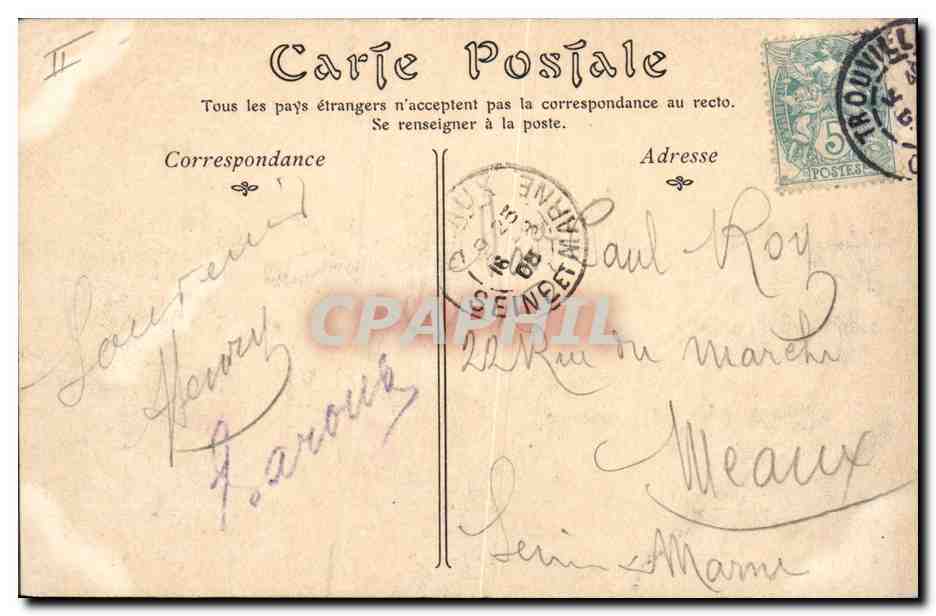 II
Carte Postale
Tous les pays étrangers n'acceptent pas la correspondance au recto.
Se renseigner à la poste.
Correspondance
Adresse
5
POSTES
TROUVILL
SEINE ET MARNE
16
08
CPAPHIL
Souvenir
Henry
Paul Roy
22 Rue du Marché
Meaux
Seine & Marne